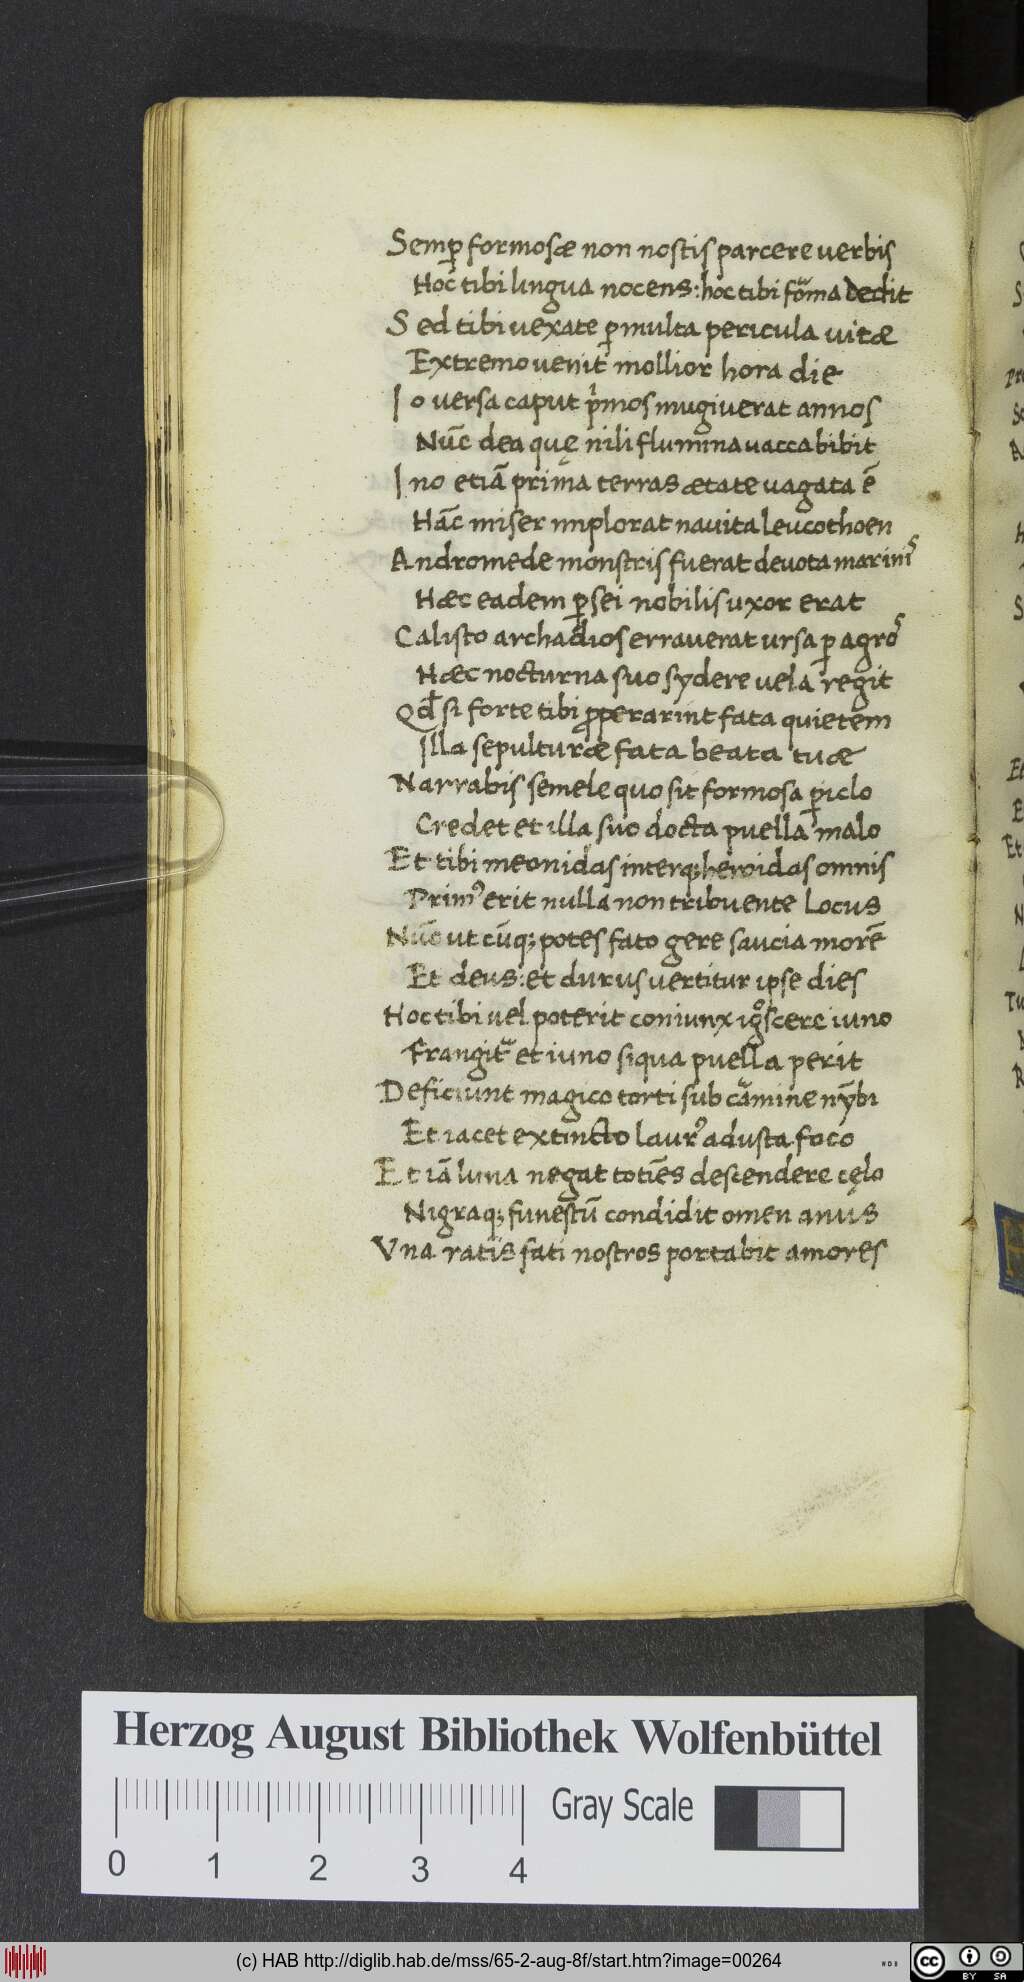 Semꝑ formosæ non nostis parcere verbis
Hoc tibi lingua nocens: hoc tibi foma dedit
Sed tibi uexate ꝑ multa pericula uitæ
Extremo uenit mollior hora die
Io versa caput pͥmos mugiuerat annos
Nūc dea quę nili flumina uacca bibit
Ino etiā prima terras ætate uagata ē
Hāc miser implorat nauita leucothoen
Andromede monstris fuerat deuota marinis
Hæc eadem ꝑsei nobilis uxor erat
Calisto archadios errauerat ursa ꝑ agros
Hæc nocturna suo sydere uela regit
Qđ si forte tibi ꝓperarint fata quietem
Illa sepulturæ fata beata tuæ
Narrabis semele quo sit formosa ꝑiclo
Credet et illa suo docta puella malo
Et tibi meonidas interq; heroidas omnis
Primꝰ erit nulla non tribuente locus
Nūc ut cūq; potes fato gere saucia morē
Et deus: et durus uertitur ipse dies
Hoc tibi uel poterit coniunx igͦscere iuno
Frangitᷣ et iuno siqua puella perit
Deficiunt magico torti sub camine nȳbi
Et iacet extincto laurꝰ adusta foco
Et iā luna negat totiēs descendere cęlo
Nigraq; funestū condidit omen anus
Vna ratis fati nostros portabit amores
Herzog August Bibliothek Wolfenbüttel
Gray Scale
0 1 2 3 4
(c) HAB http://diglib.hab.de/mss/65-2-aug-8f/start.htm?image=00264
cc BY SA